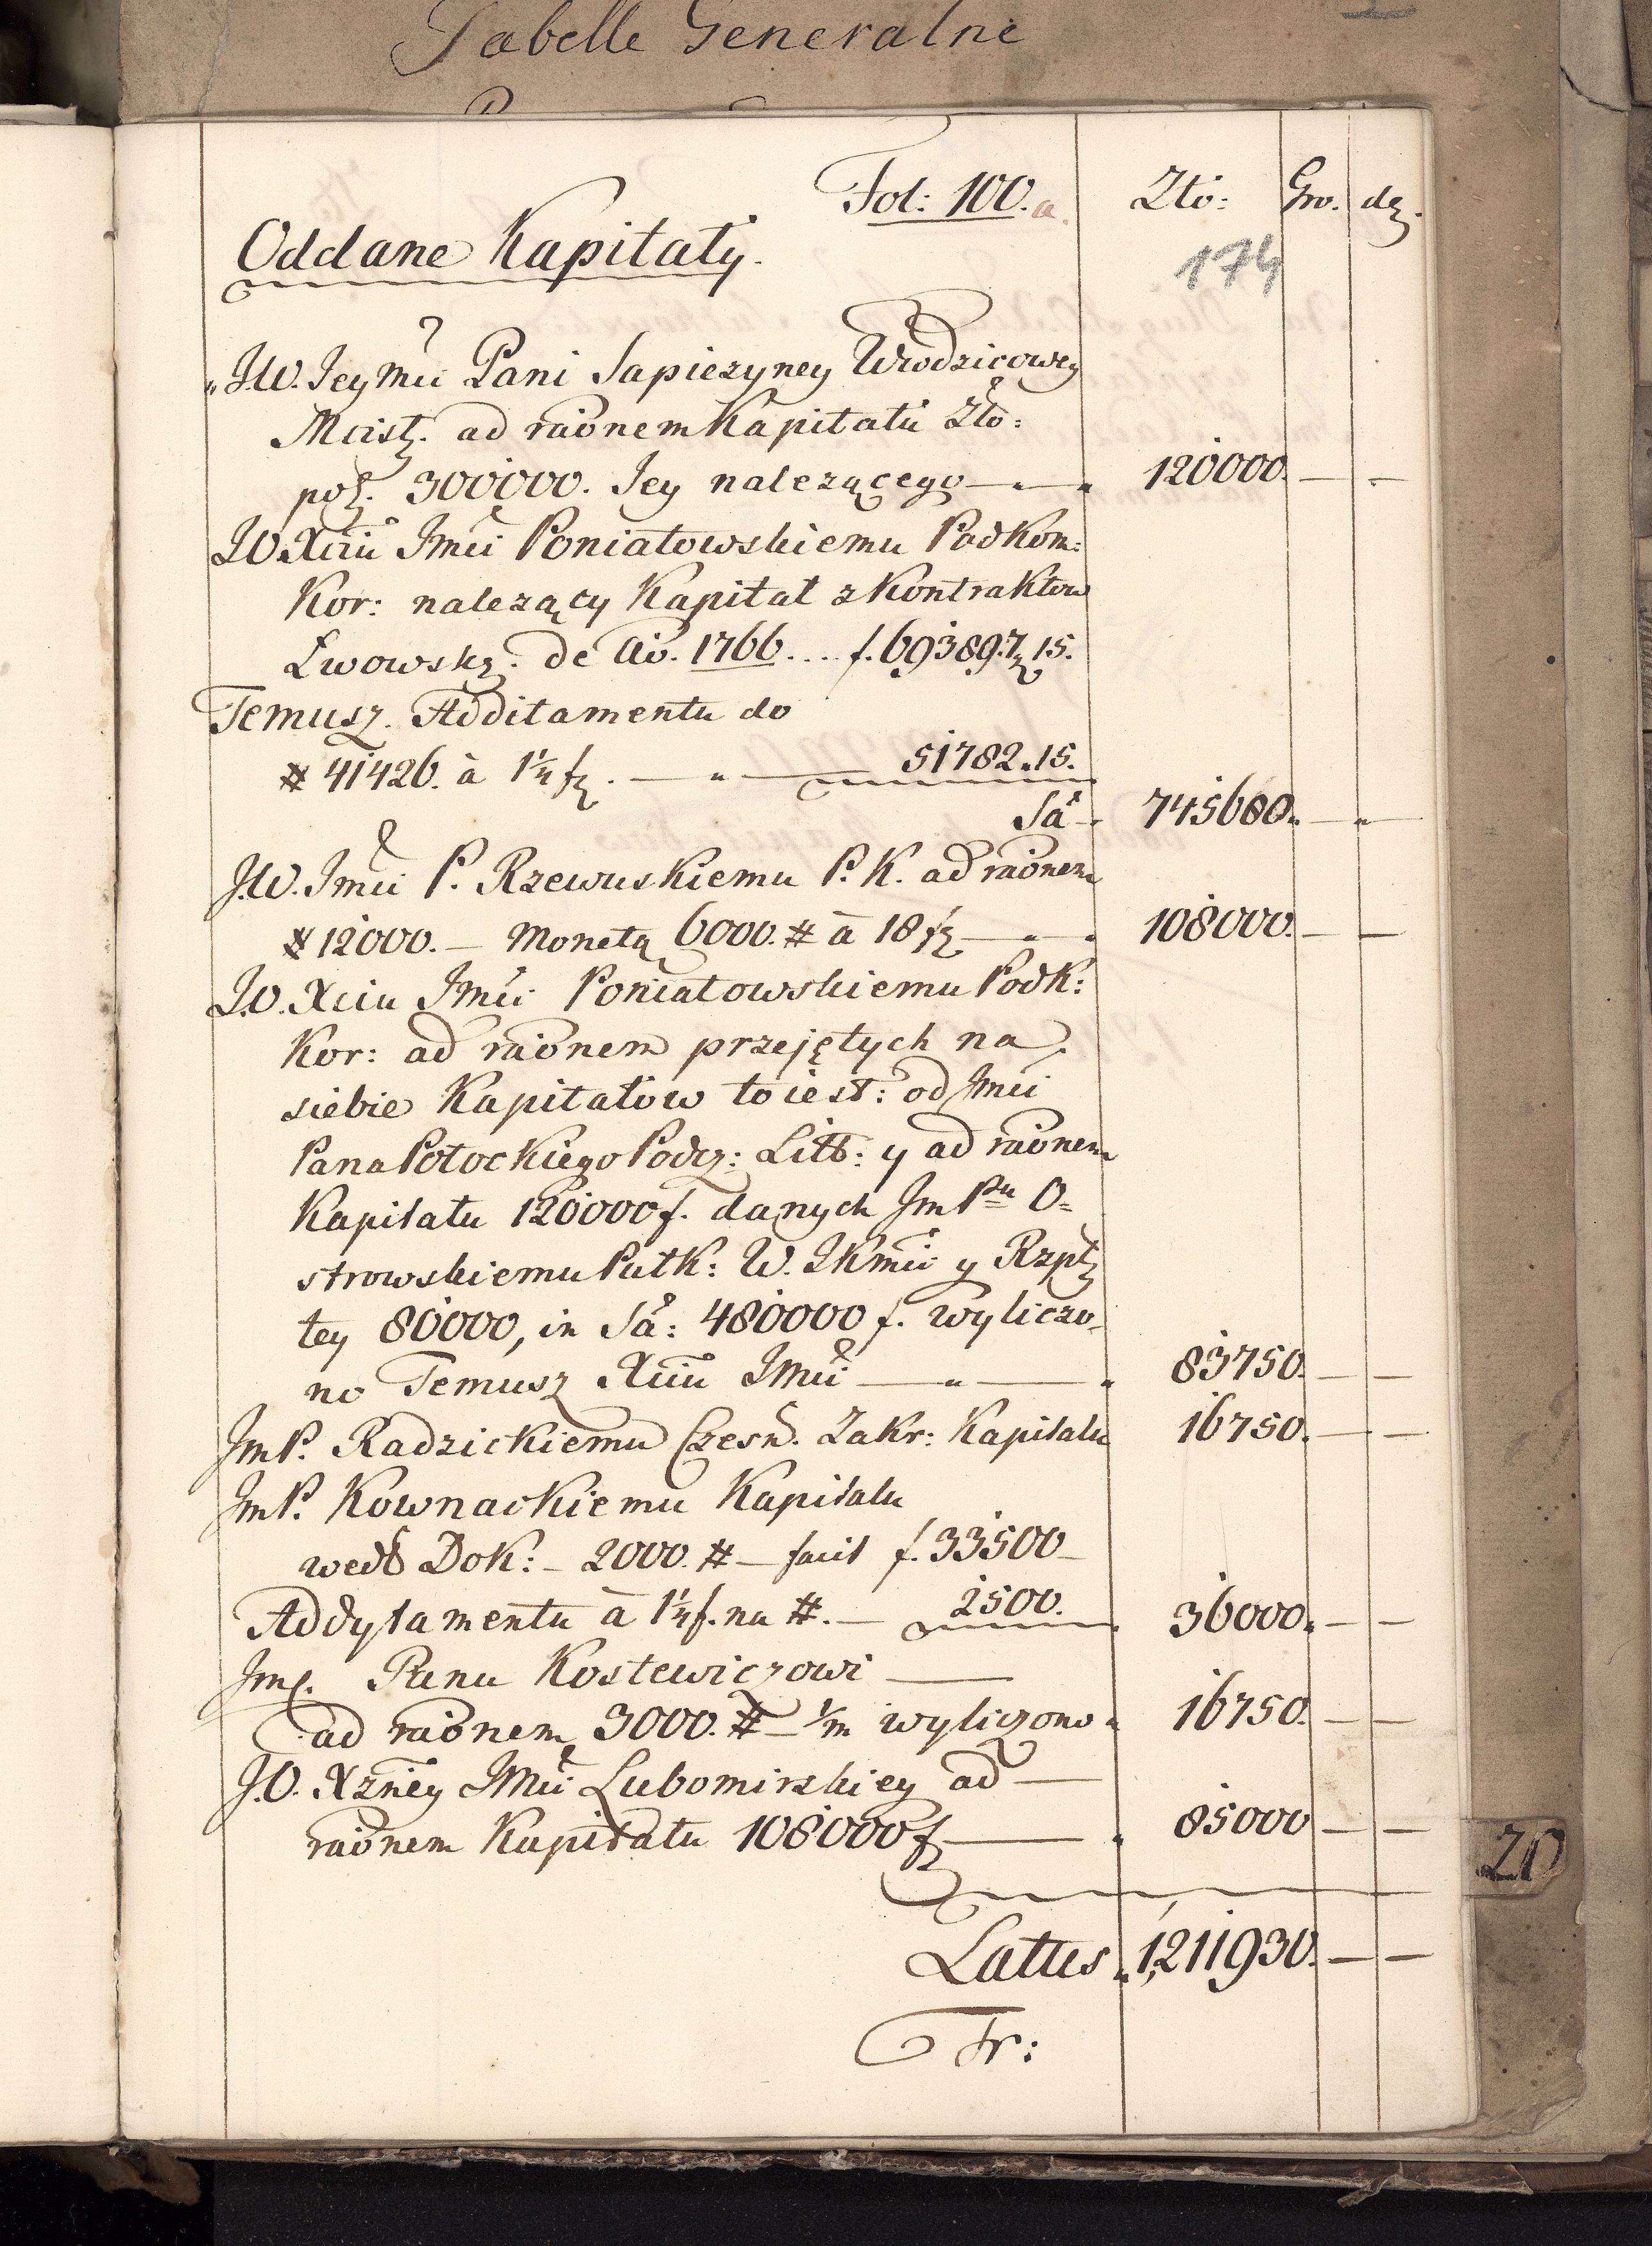 Tabelle Generalne
Fol: 100. a. Zło: Gro. de.
174
Oddane Kapitały.
J.W. Jeymci Pani Sapiezyney Wrodzicowey
Mcisł. ad raõnem Kapitału Zło:
pol. 300000. Jey należącego 120000. — —
J.O. Xciu Jmci Poniatowskiemu Podkom:
Kor: należący Kapitał z Kontraktow
Lwowskz. de Aõ. 1766 .... f. 693897„ 15.
Temusz. Additamentu do
# 41426. à 1¼ fz. — „ — 51782. 15.
Sa 745680. — —
J.W. Jmci P. Rzewuskiemu P. K. ad raõnem
# 12000. — Monetą 6000. # à 18 fz — 108000. — —
J.O. Xciu Jmci Poniatowskiemu Podk:
Kor: ad raõnem przejętych na
siebie Kapitałow to iest: od Jmci
Pana Potockiego Podcz: Litt: y ad raõnem
Kapitału 120000 f. danych Jm Pu O=
strowskiemu Putk: W. JKmci y Rzpl
tey 80000, in Sa: 480000 f. wyliczo=
no Temusz Xciu Jmci — „ — 83750. — —
JmP. Radzickiemu Czesn. Zakr: Kapitału 16750. — —
JmP. Kownackiemu Kapitału
wedł Dok: — 2000. # — facit f. 33500 —
Addytamentu à 1¼ f. na #. — 2500. 36000. — —
Jmć. Panu Kostewiczowi —
ad raõnem 3000. # — 1/m wyliczono 16750. — —
J.O. Xzney Jmci Lubomirskiey ad —
raõnem Kapitału 108000 fz — 85000 — —
20
Lattus 1,211930. — —
Tr: